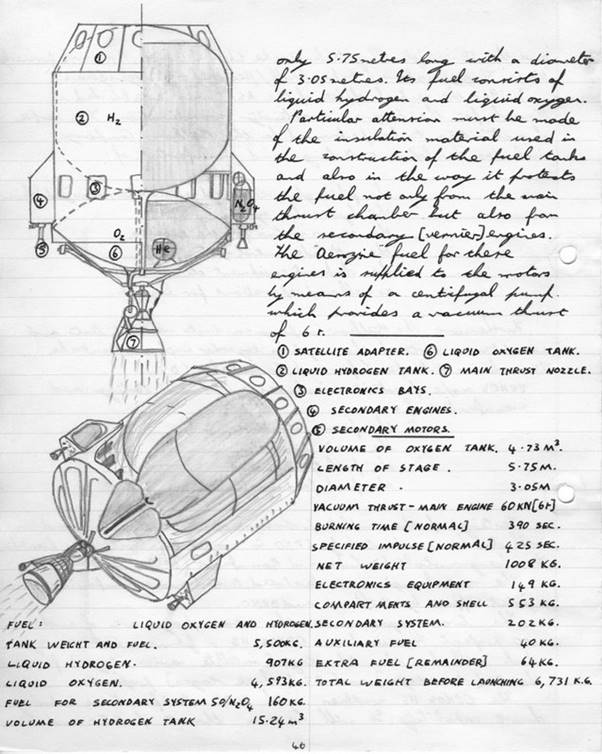 only 5.75 metres long with a diameter
of 3.05 metres. Its fuel consists of
liquid hydrogen and liquid oxygen.
Particular attension must be made
of the insulation material used in
the construction of the fuel tanks
and also in the way it protects
the fuel not only from the main
thrust chamber but also from
the secondary [vernier] engines.
The Aerozine fuel for these
engines is supplied to the motors
by means of a centifugal pump
which provides a vacuum thrust
of 6 t.
① SATELLITE ADAPTER. ⑥ LIQUID OXYGEN TANK.
② LIQUID HYDROGEN TANK. ⑦ MAIN THRUST NOZZLE.
③ ELECTRONICS BAYS.
④ SECONDARY ENGINES.
⑤ SECONDARY MOTORS.
①
② H₂
④
③
N₂O₄
⑤
O₂
⑥
He
⑦
VOLUME OF OXYGEN TANK. 4.73 M³.
LENGTH OF STAGE. 5.75M.
DIAMETER. 3.05M
VACUUM THRUST - MAIN ENGINE 60KN[6t]
BURNING TIME [NORMAL] 390 SEC.
SPECIFIED IMPULSE [NORMAL] 425 SEC.
NET WEIGHT 1008 KG.
ELECTRONICS EQUIPMENT 149 KG.
COMPARTMENTS AND SHELL 553 KG.
SECONDARY SYSTEM. 202 KG.
AUXILIARY FUEL 40 KG.
EXTRA FUEL [REMAINDER] 64 KG.
TOTAL WEIGHT BEFORE LAUNCHING 6,731 KG.
FUEL: LIQUID OXYGEN AND HYDROGEN.
TANK WEIGHT AND FUEL. 5,500KG.
LIQUID HYDROGEN. 907KG
LIQUID OXYGEN. 4,593KG.
FUEL FOR SECONDARY SYSTEM 50/N₂O₄ 160 KG.
VOLUME OF HYDROGEN TANK 15.24 m³
46